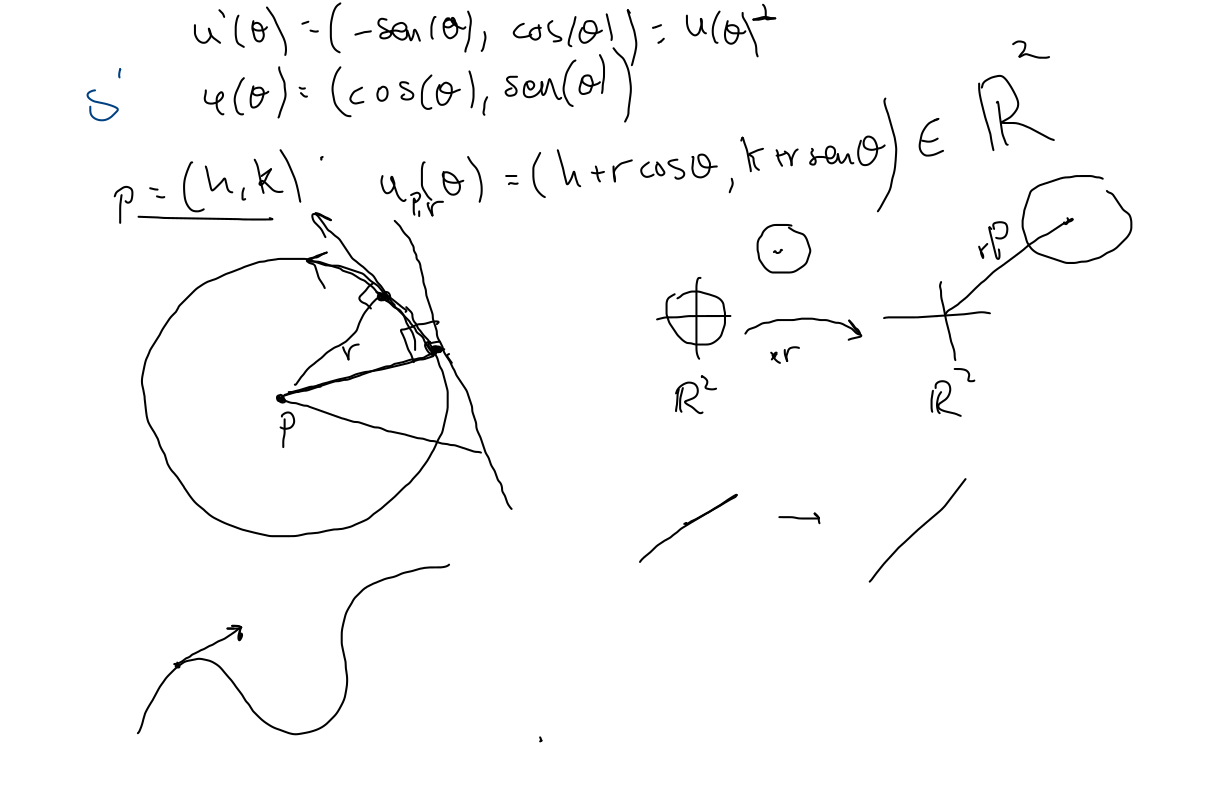 u'(θ) = (-sen(θ), cos(θ)) = u(θ)^⊥
S¹ φ(θ) = (cos(θ), sen(θ))
p = (h, k) u_{p,r}(θ) = (h+r cosθ, k+r senθ) ∈ ℝ²
rP
r
×r
P
ℝ² ℝ²